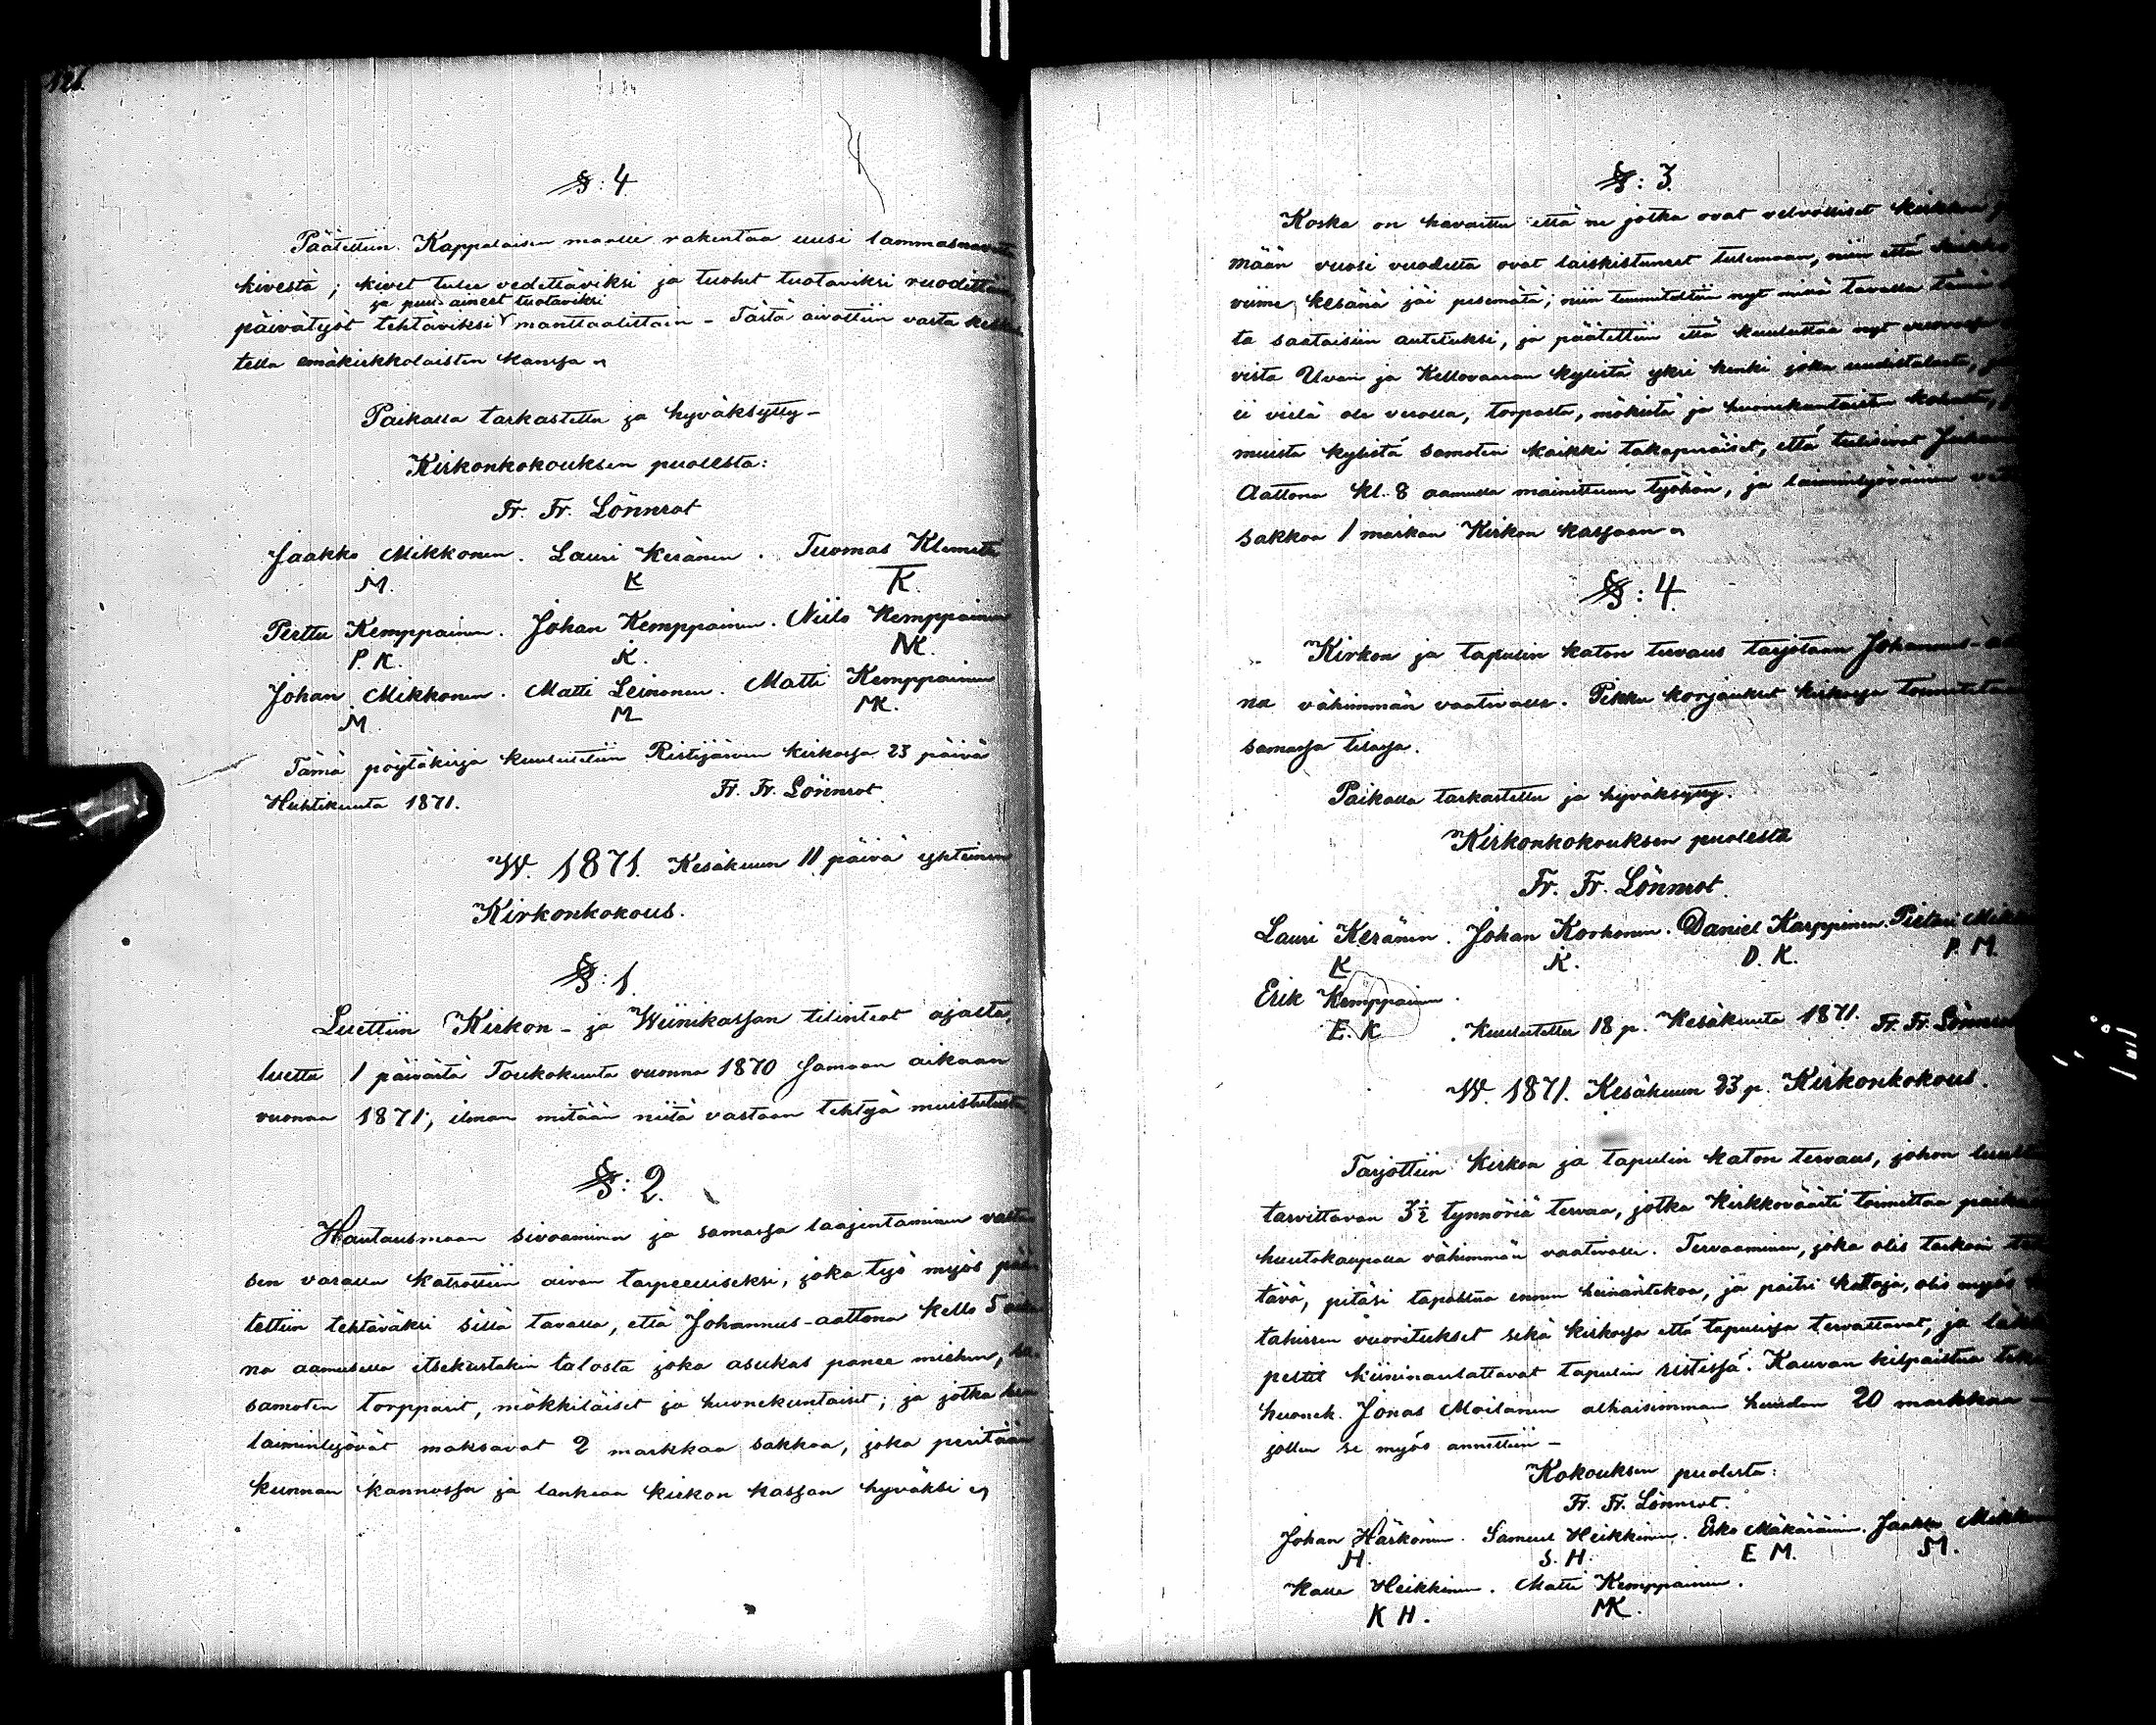 §: 4.
Päätettiin Kappalaisen maalle rakentaa uusi lammasnavetta
kivestä; kivet tulee vedettäviksi ja tuohet tuotaviksi ruodittain,
ja puu-aineet tuotaviksi
päivätyöt tehtäviksi manttaalittain - Tästä aivottiin vasta keskus
tella emäkirkkolaisten kanssa
Paikalla tarkastettu ja hyväksytty -
Kirkonkokouksen puolesta:
Fr. Fr. Lönnrot
Jaakko Mikkonen. Lauri Keränen. Tuomas Klemetti
M. K K.
Perttu Kemppainen. Johan Kemppainen. Niilo Kemppainen
P. K. K. NK.
Johan Mikkonen. Matti Leinonen. Matti Kemppainen
M. M MK.
Tämä pöytäkirja kuulutettiin Ristijärven kirkossa 23 päivä
Huhtikuuta 1871. Fr. Fr. Lönnrot.
W. 1871. Kesäkuun 11 päivä yhteinen
Kirkonkokous.
§: 1.
Luettiin Kirkon- ja Wiinikassan tilinteot ajasta,
luettu 1 päivästä Toukokuuta vuonna 1870 samaan aikaan
vuonna 1871; ilman mitään niitä vastaan tehtyä muistutusta.
§: 2.
Hautausmaan sivoaminen ja samassa laajentaminen vastai
sen varalla katsottiin aivan tarpeelliseksi, joka työ myös pää-
tettiin tehtäväksi sillä tavalla, että Johannus-aattona kello 5
na aamusella itsekustakin talosta joka asukas panee miehen,
samoten torpparit, mökkiläiset ja huonekuntaiset; ja jotka
laiminlyövät maksavat 2 markkaa sakkoa, joka peritään
kunnan kannossa ja lankeaa kirkon kassan hyväksi
§: 3.
Koska on havaittu että ne jotka ovat velvolliset kirkkoa
mään vuosi vuodelta ovat laiskistuneet tulemaan, niin että kirkko
viime kesänä jäi pesemätä; niin tuumiteltiin nyt mitä tavalla tämä
ta saataisiin autetuksi, ja päätettiin että kuuluttaa nyt
vista Uvan ja Kellovaaran kylistä yksi henki joka uudistalosta,
ii vielä ole verolla, torpasta, mökistä ja huonekuntaisten
muista kylistä samoten kaikki takaperäiset, että tulisivat
Aattona kl. 8 aamulla mainittuun työhön, ja laiminlyöväinen
sakkoa 1 markan Kirkon kassaan
§: 4.
Kirkon ja tapulin katon tervaus tarjotaan Johannus-
na vähimmän vaativalle. Pikku korjaukset kirkossa toimitetaan
samassa tilassa.
Paikalla tarkastettu ja hyväksytty.
Kirkonkokouksen puolesta
Fr. Fr. Lönnrot.
Lauri Keränen. Johan Korhonen. Daniel Karppinen. Pietari
K K. D. K. P. M.
Erik Kemppainen.
E. K. Kuulutettu 18 p. Kesäkuuta 1871. Fr. Fr. Lönnrot
W. 1871. Kesäkuun 23 p. Kirkonkokous.
Tarjottiin Kirkon ja tapulin katon tervaus, johon luultiin
tarvittavan 3½ tynnöriä tervaa, jotka Kirkkoväärti toimittaa paikalle
huutokaupalla vähimmän vaativalle. Tervaaminen, joka olis tarkoin
tävä, pitäsi tapahtua ennen heinäntekoa, ja paitsi kattoja, olis myös
tahisen vuoritukset sekä kirkossa että tapulissa tervattavat, ja
peltit kiininaulattavat tapulin ristissä. Kauvan kilpailtua
huonek. Jonas Moilanen alhaisimman huudon 20 markkaa -
jollen se myös annettiin -
Kokouksen puolesta:
Fr. Fr. Lönnrot.
Johan Härkönen. Samuel Heikkinen. Esko Mäkäräinen. Jaakko Mikkonen
H. S. H. E M. M.
Kalle Heikkinen. Matti Kemppainen.
K H. MK.